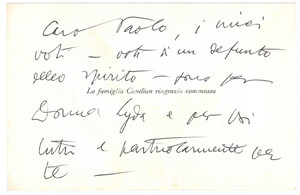 Caro Paolo, i miei
voti – voti di un defunto
dello spirito – sono per
La famiglia Candian ringrazia commossa
Donna Lyda e per voi
tutti e particolarmente per
te –